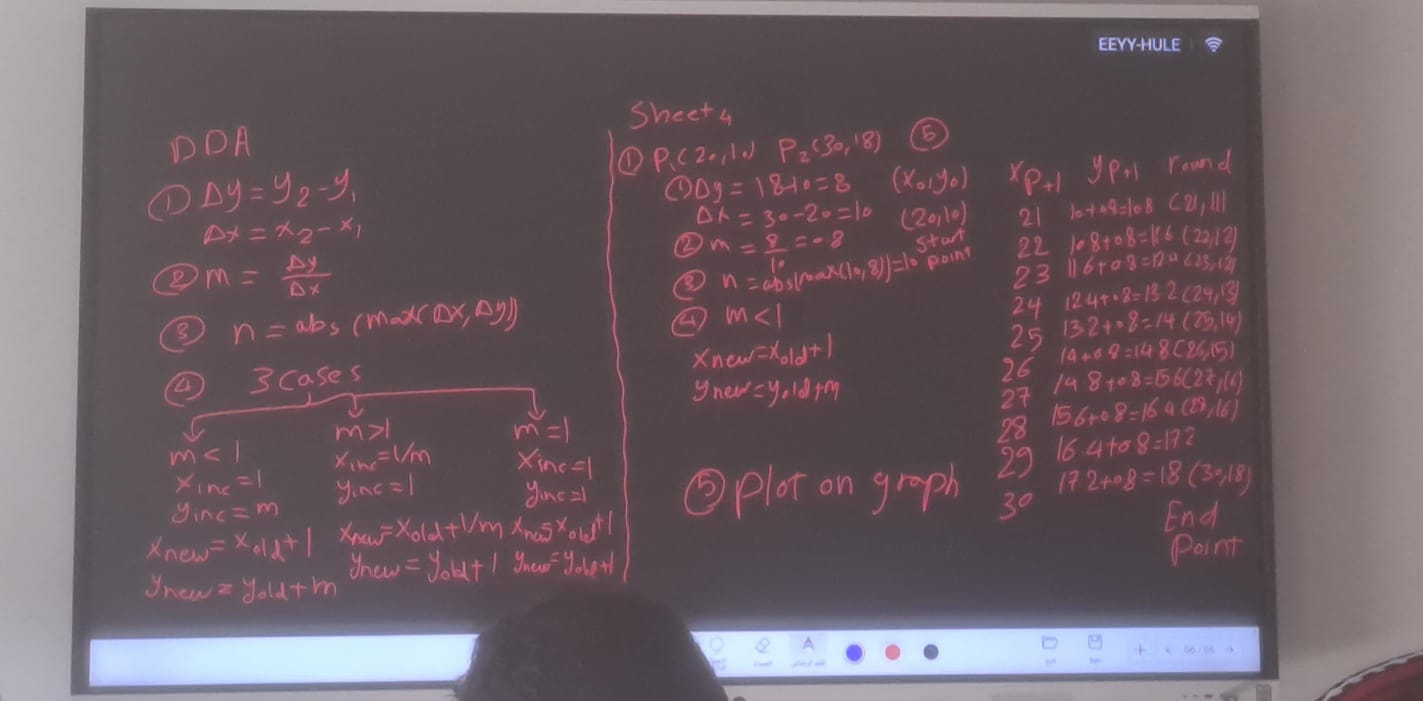 EEYY-HULE
DDA
① Δy = y2 - y1
Δx = x2 - x1
② m = Δy/Δx
③ n = abs (max(Δx, Δy))
④ 3 cases
m < 1
xinc = 1
yinc = m
xnew = xold + 1
ynew = yold + m
m > 1
xinc = 1/m
yinc = 1
xnew = xold + 1/m
ynew = yold + 1
m = 1
xinc = 1
yinc = 1
xnew = xold + 1
ynew = yold + 1
Sheet 4
① P1(20,10) P2(30,18)
① Δy = 18-10 = 8
Δx = 30-20 = 10
② m = 8/10 = 0.8
③ n = abs(max(10,8)) = 10
④ m < 1
xnew = xold + 1
ynew = yold + m
⑤ plot on graph
⑤
(x0,y0)
(20,10)
start
point
xp+1 yp+1 round
21 10+0.8=10.8 (21,11)
22 10.8+0.8=11.6 (22,12)
23 11.6+0.8=12.4 (23,12)
24 12.4+0.8=13.2 (24,13)
25 13.2+0.8=14 (25,14)
26 14+0.8=14.8 (26,15)
27 14.8+0.8=15.6 (27,16)
28 15.6+0.8=16.4 (28,16)
29 16.4+0.8=17.2
30 17.2+0.8=18 (30,18)
End
Point
06 / 06